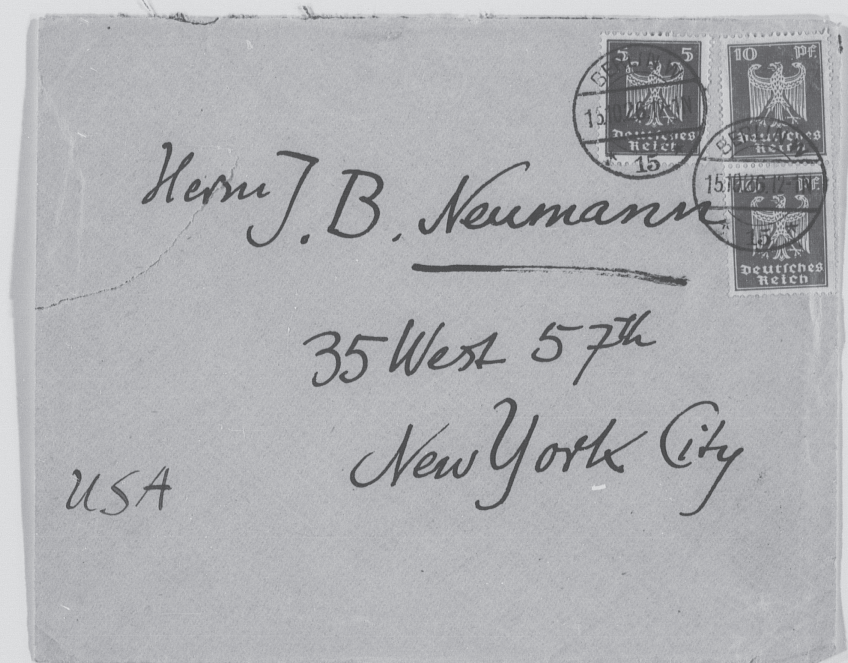 5 5
Deutsches
Reich
10 Pf
Deutsches
Reich
15
Deutsches
Reich
Herrn J. B. Neumann
35 West 57th
New York City
USA